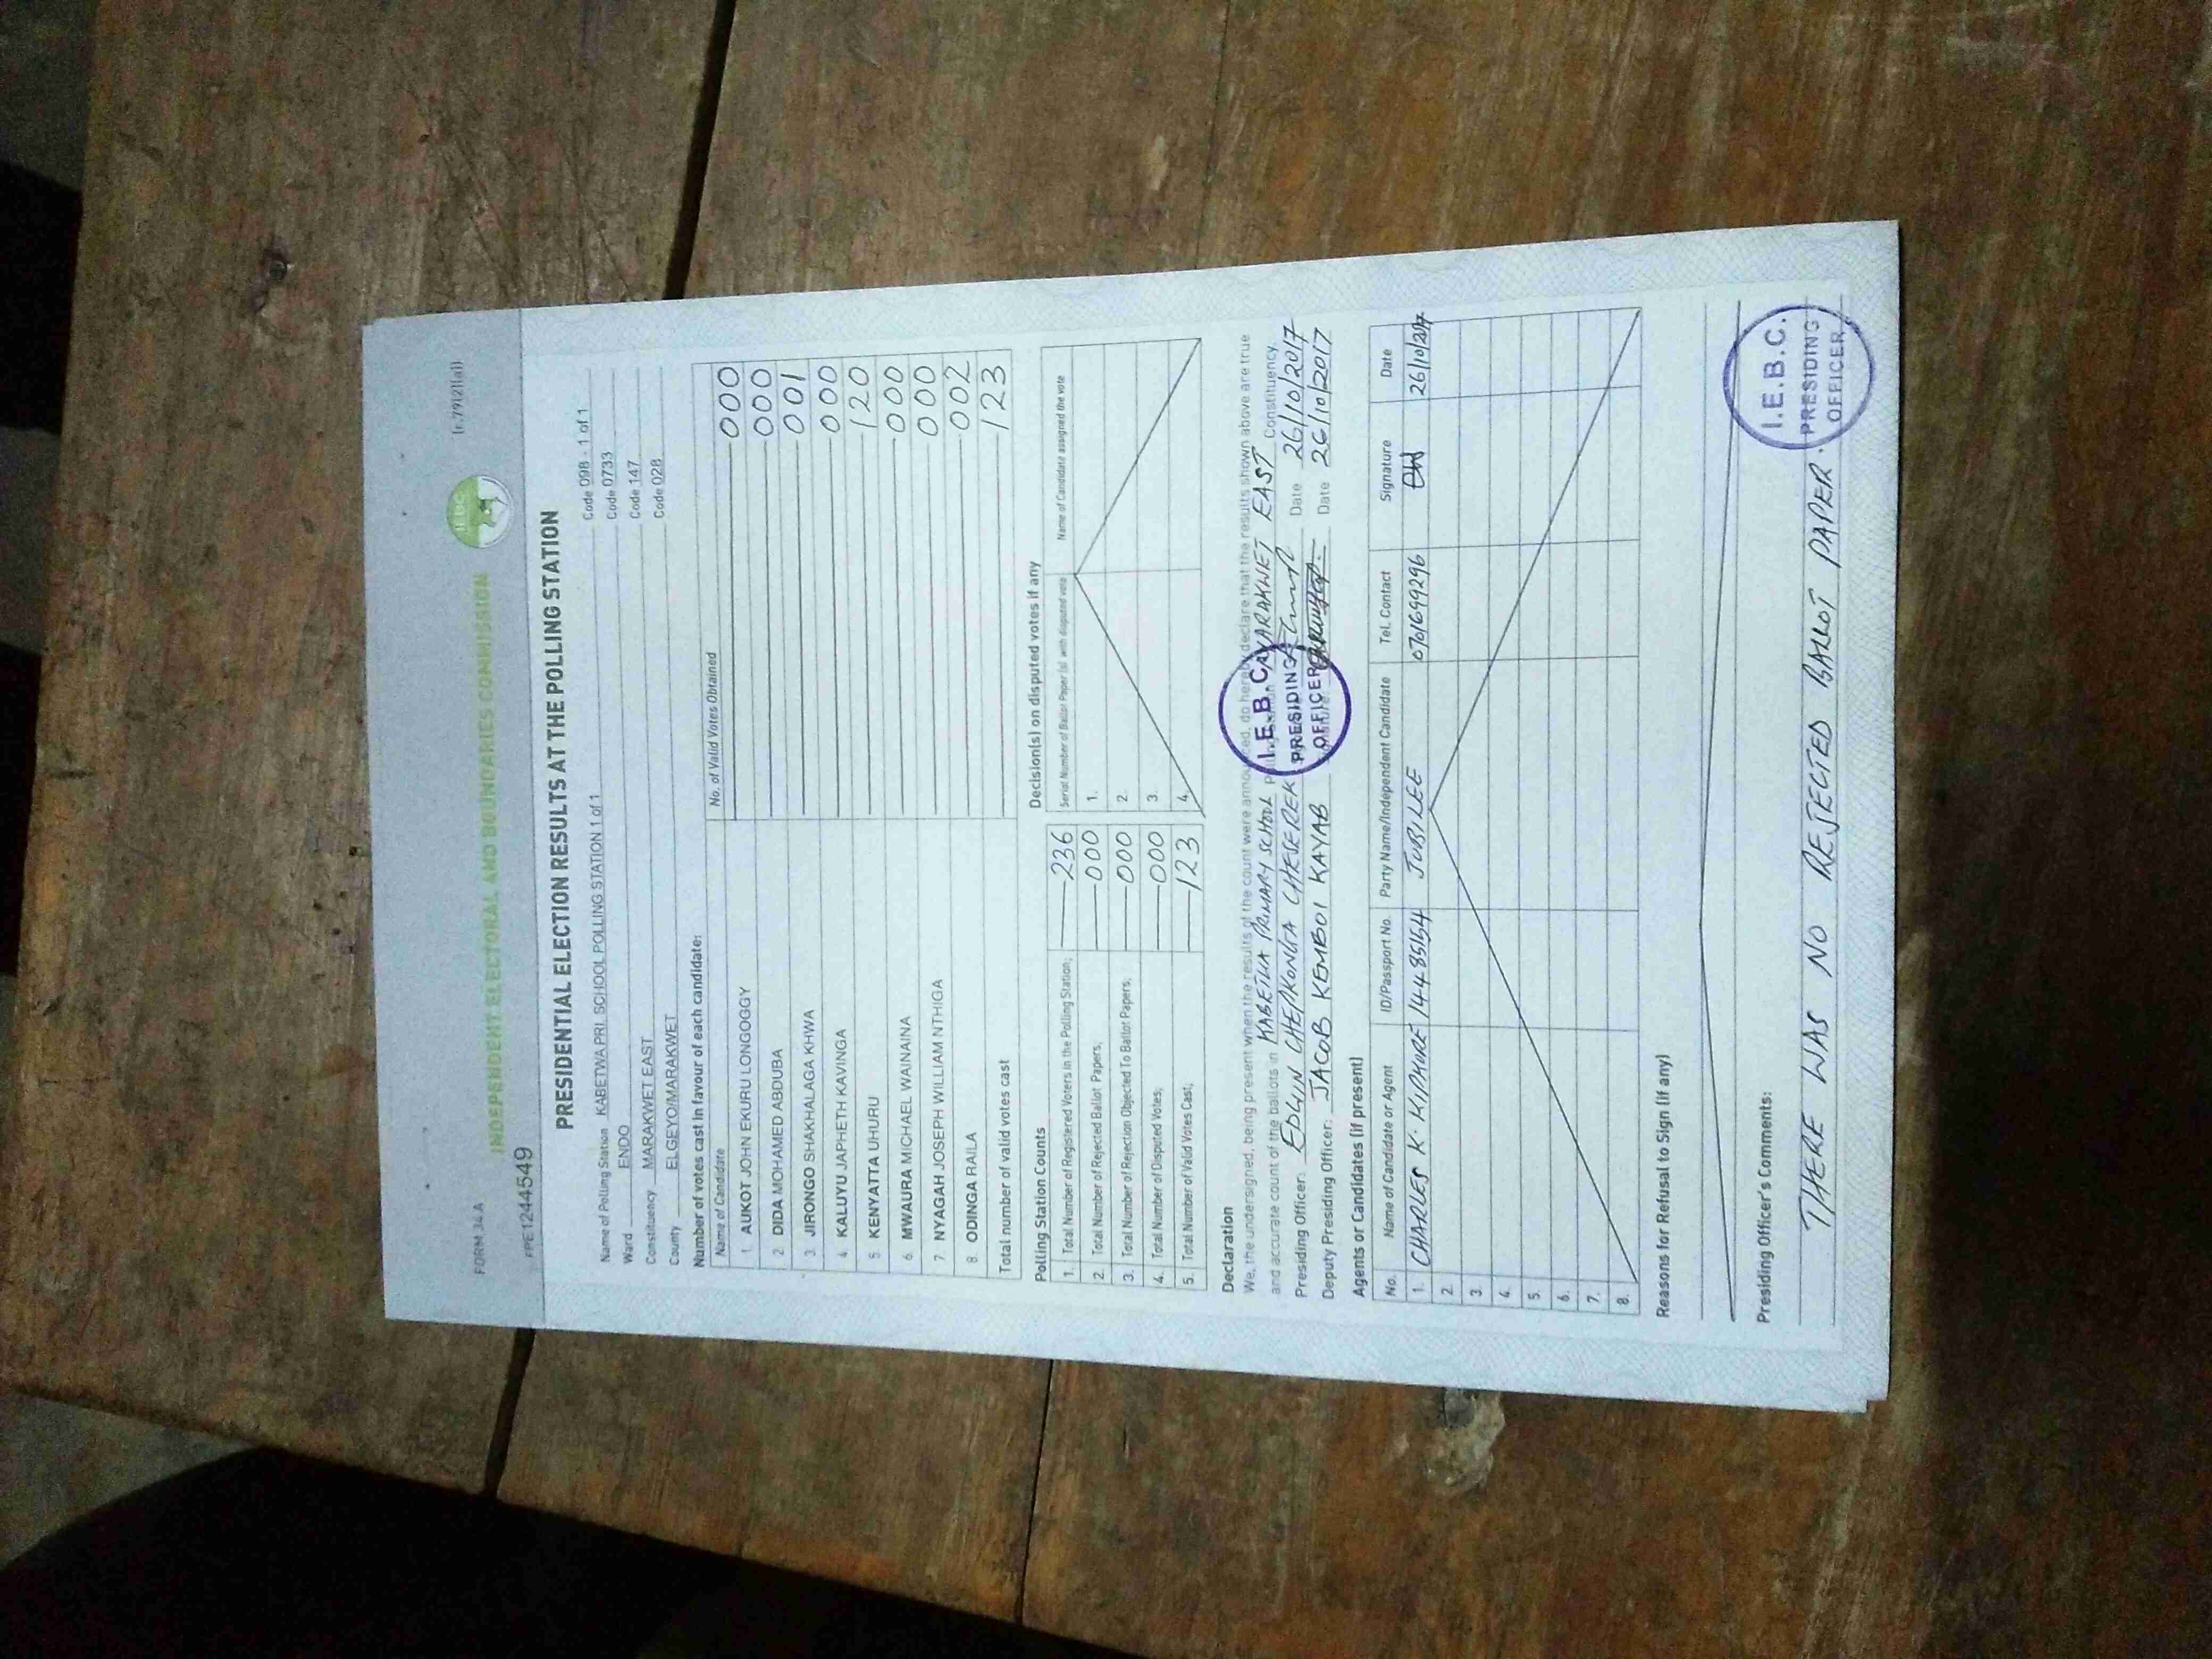 FORM 34 A
(r.79(2)(a))
INDEPENDENT ELECTORAL AND BOUNDARIES COMMISSION
IEBC
FPE1244549
PRESIDENTIAL ELECTION RESULTS AT THE POLLING STATION
Name of Polling Station KABETWA PRI. SCHOOL POLLING STATION 1 of 1 Code 098 - 1 of 1
Ward ENDO Code 0733
Constituency MARAKWET EAST Code 147
County ELGEYO/MARAKWET Code 028
Number of votes cast in favour of each candidate:
Name of Candidate No. of Valid Votes Obtained
1 AUKOT JOHN EKURU LONGOGGY 000
2 DIDA MOHAMED ABDUBA 000
3 JIRONGO SHAKHALAGA KHWA 001
4 KALUYU JAPHETH KAVINGA 000
5 KENYATTA UHURU 120
6. MWAURA MICHAEL WAINAINA 000
7. NYAGAH JOSEPH WILLIAM NTHIGA 000
8. ODINGA RAILA 002
Total number of valid votes cast 123
Polling Station Counts
1. Total Number of Registered Voters in the Polling Station; 236
2. Total Number of Rejected Ballot Papers; 000
3. Total Number of Rejection Objected To Ballot Papers; 000
4. Total Number of Disputed Votes; 000
5. Total Number of Valid Votes Cast; 123
Decision(s) on disputed votes if any
Serial Number of Ballot Paper (s) with disputed vote Name of Candidate assigned the vote
1.
2.
3.
4.
Declaration
We, the undersigned, being present when the results of the count were announced, do hereby declare that the results shown above are true
and accurate count of the ballots in KABETWA PRIMARY SCHOOL MARAKWET EAST Constituency.
Presiding Officer: EDWIN CHEPKONGA CHESEREK Date 26/10/2017
Deputy Presiding Officer: JACOB KEMBOI KAYAB Date 26/10/2017
I.E.B.C.
PRESIDING
OFFICER
Agents or Candidates (if present)
No. Name of Candidate or Agent ID/Passport No. Party Name/Independent Candidate Tel. Contact Signature Date
1. CHARLES K. KIPKORE 14485154 JUBILEE 0701699296 26/10/2017
2.
3.
4.
5.
6.
7.
8.
Reasons for Refusal to Sign (if any)
Presiding Officer's Comments:
THERE WAS NO REJECTED BALLOT PAPER.
I.E.B.C.
PRESIDING
OFFICER